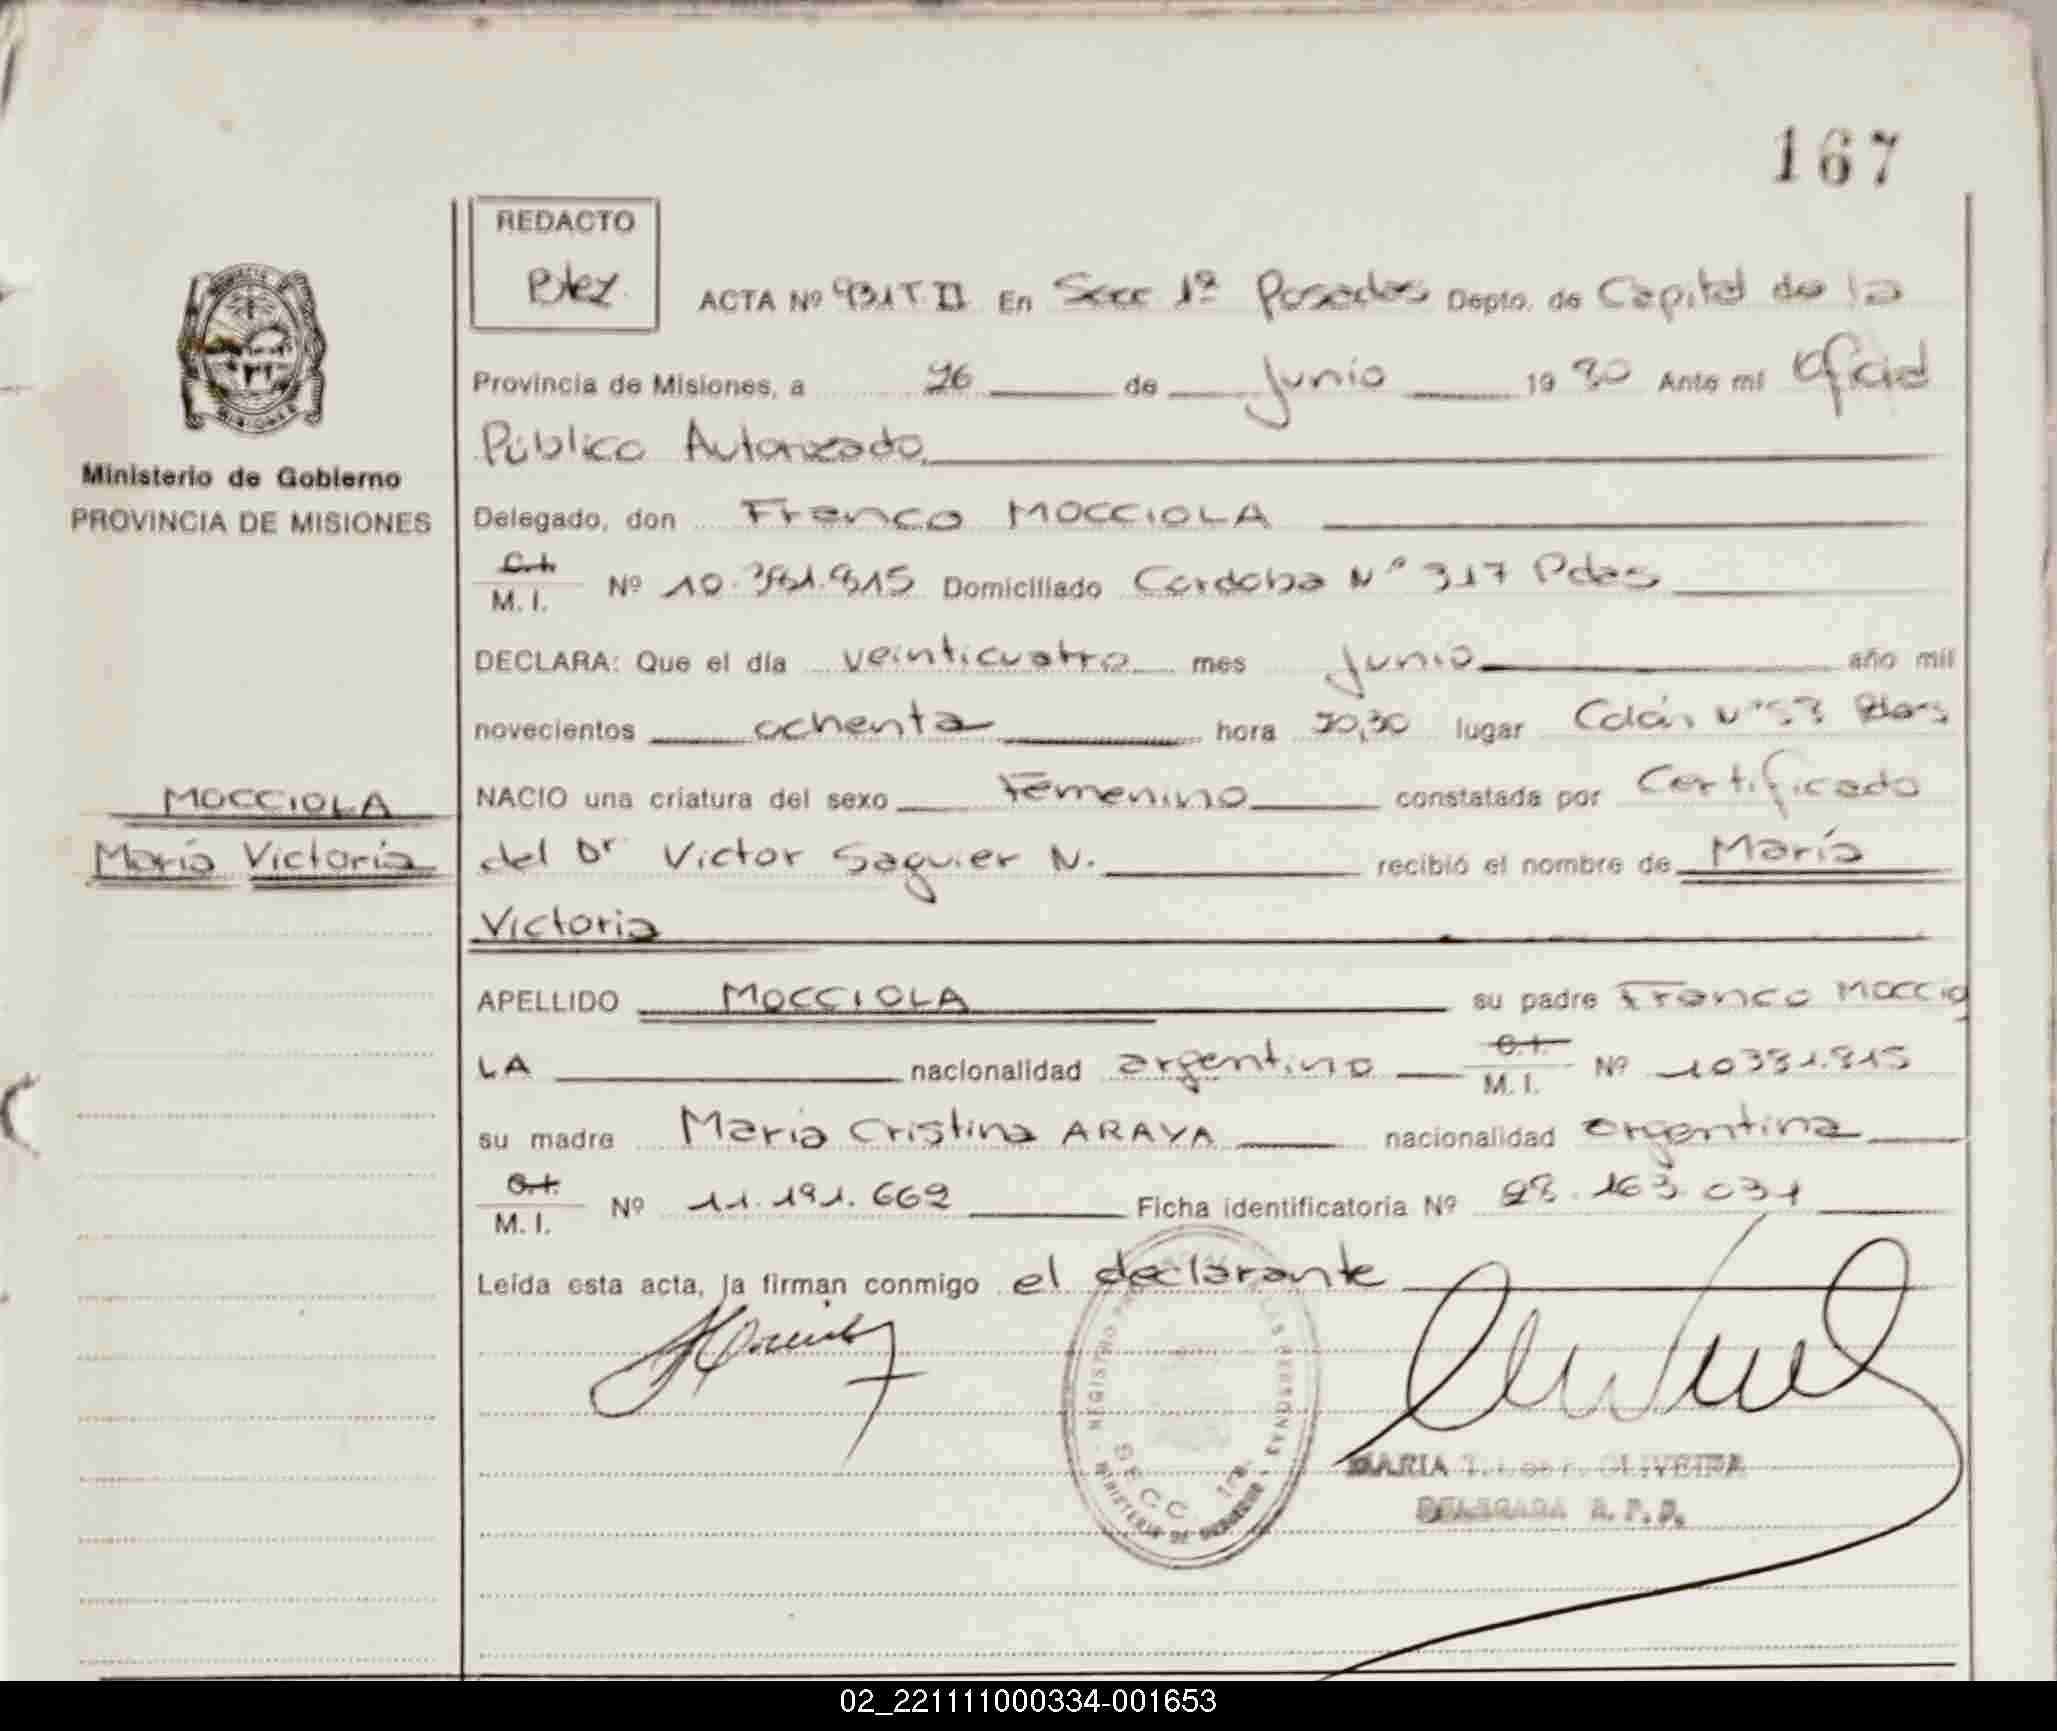 167
REDACTO
ACTA Nº 931 T II En Secc 1ª Posadas Depto. de Capital de la
Provincia de Misiones, a 26 de Junio 19 80 Ante mí Oficial
Público Autorizado
Ministerio de Gobierno
PROVINCIA DE MISIONES
Delegado, don Franco MOCCIOLA
C.I.
M. I. Nº Domiciliado Cordoba Nº 317 Pdas
DECLARA: Que el día veinticuatro mes Junio año mil
novecientos ochenta hora 20,30 lugar Colón Nº 53 Pdas
MOCCIOLA
María Victoria
NACIO una criatura del sexo Femenino constatada por Certificado
del Dr Victor Saguier N. recibió el nombre de María
Victoria
APELLIDO MOCCIOLA su padre Franco MOCCIO
LA nacionalidad argentino C.I.
M. I. Nº
su madre María Cristina ARAYA nacionalidad argentina
C.I.
M. I. Nº 11.191.662 Ficha identificatoria Nº 28.163.031
Leída esta acta, la firman conmigo el declarante
REGISTRO DE LAS PERSONAS
MINISTERIO DE GOBIERNO
SECC 1ra.
MARIA OLIVEIRA
DELEGADA R. P. P.
02_221111000334-001653